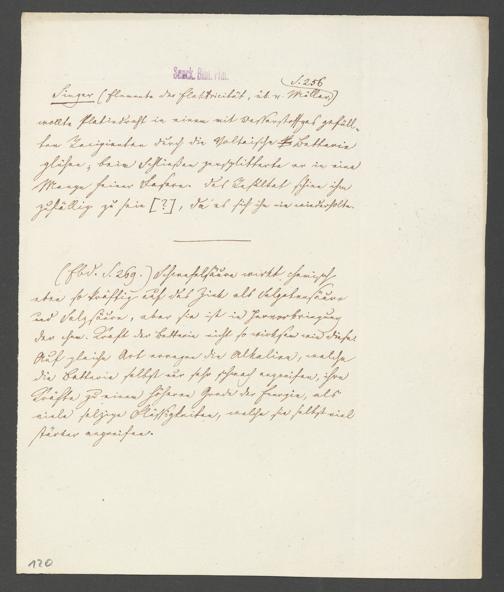 Senck. Bibl. Ffm.
S. 256
Singer (Elemente der Elektricität, üb. v. Müller)
wollte Platindraht in einem mit Wasserstoffgas gefüll-
ten Recipienten durch die Voltaische Batterie
glühen; beim Schließen zersplitterte er in eine
Menge feiner Fasern. Das Resultat schien ihm
zufällig zu sein [?], da es sich ihm nie wiederholte.
(Ebd. S. 269.) Schwefelsäure wirkt chemisch
eben so kräftig auf das Zink als Salpetersäure
und Salzsäure, aber sie ist in Hervorbringung
der chem. Kraft der Batterie nicht so wirksam wie diese.
Auf gleiche Art erregen die Alkalien, welche
die Batterie selbst nur sehr schwach angreifen, ihre
Kräfte zu einem höheren Grade der Energie, als
viele salzige Flüssigkeiten, welche sie selbst viel
stärker angreifen.
120